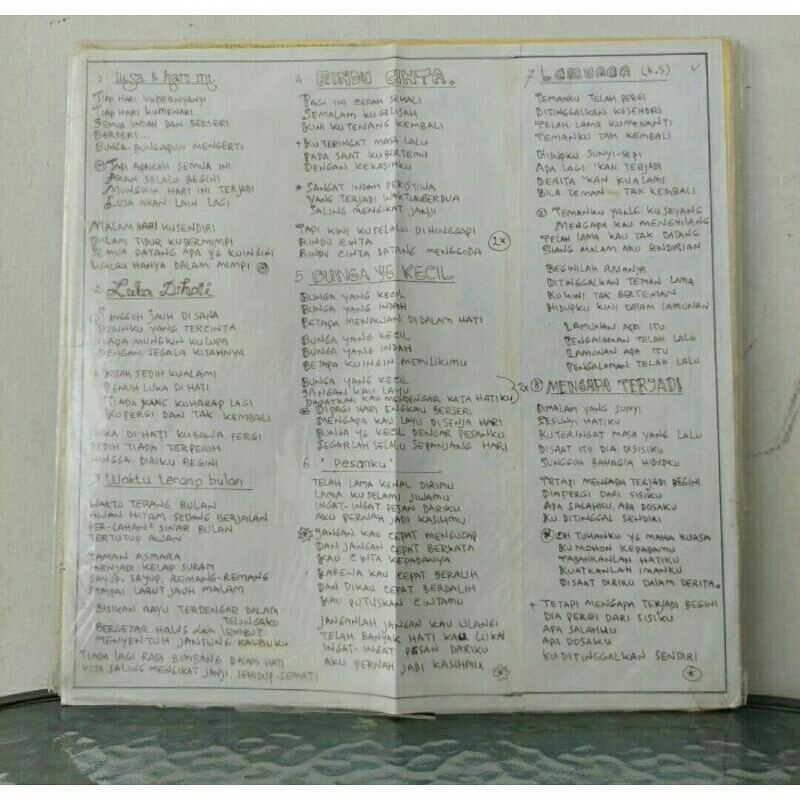 1 Lusa & hari ini
Tiap hari kubernyanyi
Tiap hari kumenari
Semua indah dan berseri
Berseri...
Bunga-bungapun mengerti
Tapi apakah semua ini
Akan selalu begini
Mungkin hari ini terjadi
Lusa akan lain lagi
Malam hari kusendiri
Dalam tidur kubermimpi
Semua datang apa yg kuingini
Walau hanya dalam mimpi
2 Luka Dihati
Sungguh jauh di sana
Dusunku yang tercinta
Tiada mungkin kulupa
Dengan segala kisahnya
Kisah sedih kualami
Penuh luka di hati
Tiada yang kuharap lagi
Kupergi dan tak kembali
Luka di hati kubawa pergi
Pedih tiada terperih
Hingga diriku begini
3 Waktu terang bulan
Waktu terang bulan
Awan hitam sedang berjalan
Per-lahan² sinar bulan
Tertutup awan
Taman asmara
Menjadi kelap suram
Sayup, sayup, remang-remang
Sampai larut jauh malam
Bisikan rayu terdengar dalam
telingaku
Bergetar halus dan lembut
Menyentuh jantung kalbuku
Tiada lagi rasa bimbang dalam hati
Kita saling mengikat janji, sehidup-semati
4 RINDU CINTA.
Pagi ini cerah sekali
Semalam kugelisah
Kini ku tenang kembali
+ Ku teringat masa lalu
Pada saat kubertemu
Dengan kekasihku
* Sangat indah peristiwa
Yang terjadi waktu berdua
Saling mengikat janji
Tapi kini kuselalu dihinggapi
Rindu cinta
Rindu cinta datang menggoda 2x
5 BUNGA YG KECIL
Bunga yang kecil
Bunga yang indah
Betapa menawan didalam hati
Bunga yang kecil
Bunga yang indah
Betapa kuingin memilikimu
Bunga yang kecil
Jangan kau layu
Dapatkah kau mendengar kata hatiku 2x
Dipagi hari engkau berseri
Mengapa kau layu di senja hari
Bunga yg kecil dengar pesanku
Segarlah selalu sepanjang hari
6 "Pesanku"
Telah lama kenal dirimu
Lama kuselami jiwamu
Ingat-ingat pesan dariku
Aku pernah jadi kasihmu
Jangan kau cepat mengucap
Dan jangan cepat berkata
Kau cinta kepadanya
Karena kau cepat beralih
Dan dikau cepat berdalih
Kau putuskan cintamu
Janganlah jangan kau ulangi
Telah banyak hati kau luka
Ingat-ingat pesan dariku
Aku pernah jadi kasihmu
7 LAMUNAN (k.s)
Temanku telah pergi
Ditinggalkan kusendri
Telah lama kumenanti
Temanku tak kembali
Hidupku sunyi-sepi
Apa lagi 'kan terjadi
Derita 'kan kualami
Bila teman tak kembali
Temanku yang ku sayang
Mengapa kau menghilang
Telah lama kau tak datang
Siang malam aku sendirian
Beginilah rasanya
Ditinggalkan teman lama
Ku kini tak berteman
Hidupku kini dalam lamunan
Lamunan apa itu
Pengalaman telah lalu
Lamunan apa itu
Pengalaman telah lalu
8 MENGAPA TERJADI
Dimalam yang sunyi
Sesunyi hatiku
Kuteringat masa yang lalu
Disaat itu dia disisiku
Sungguh bahagia hidupku
Tetapi mengapa terjadi begini
Dia pergi dari sisiku
Apa salahku, apa dosaku
Ku ditinggal sendiri
Oh Tuhanku yg maha kuasa
Kumohon kepadamu
Tabahkanlah hatiku
Kuatkanlah imanku
Disaat diriku dalam derita.
+ Tetapi mengapa terjadi begini
Dia pergi dari sisiku
Apa salahku
Apa dosaku
Ku ditinggalkan sendiri